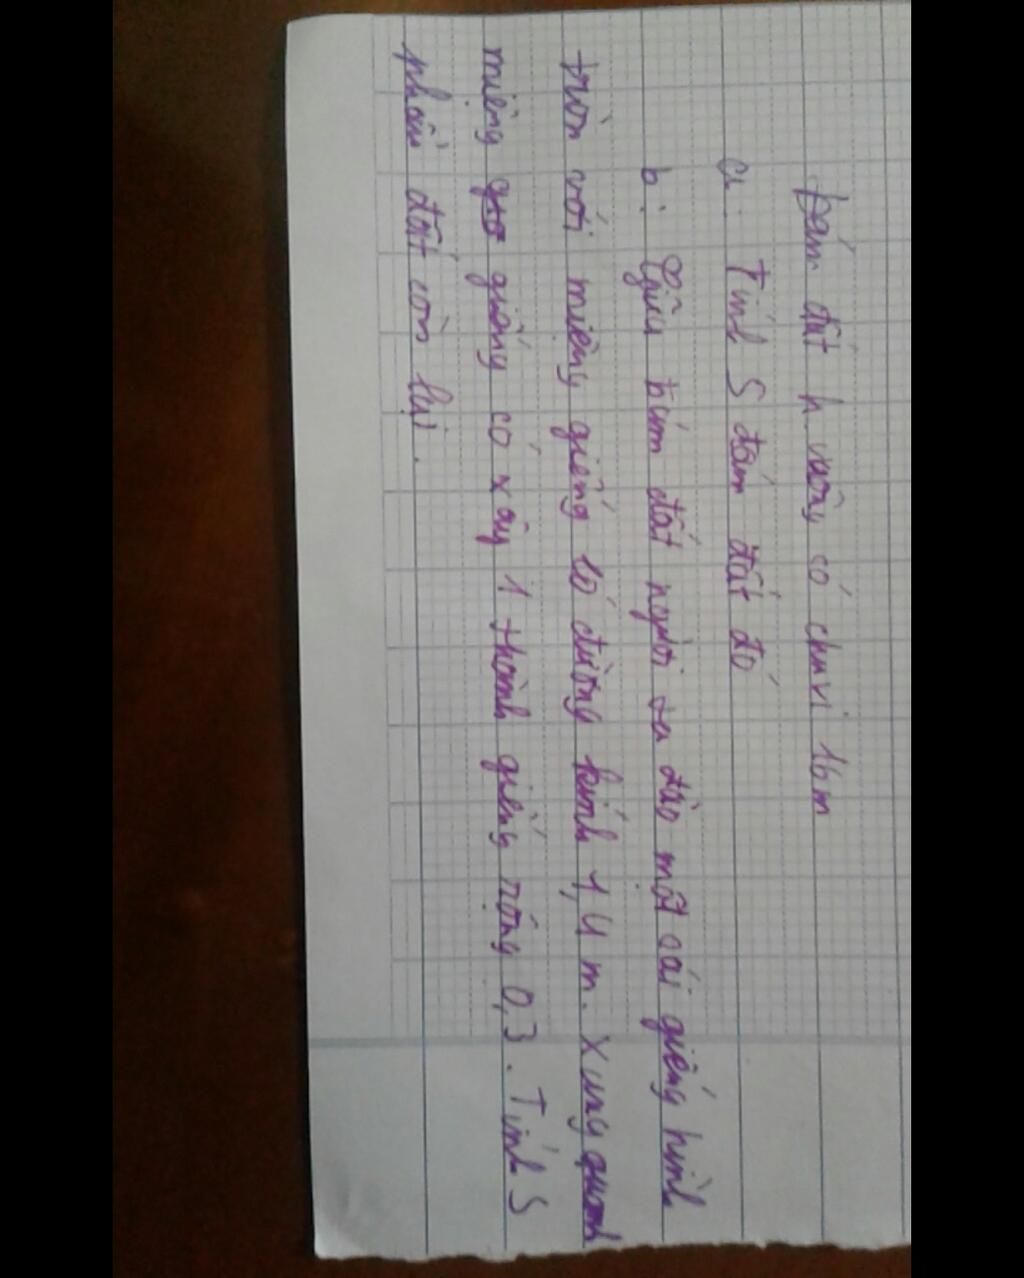 Đám đất h vuông có chu vi 16m
a. Tính S đám đất đó
b. Giữa đám đất người ta đào một cái giếng hình
tròn với miệng giếng có đường kính 1,4 m. Xung quanh
miệng giếng có xây 1 thành giếng rộng 0,3. Tính S
phần đất còn lại.